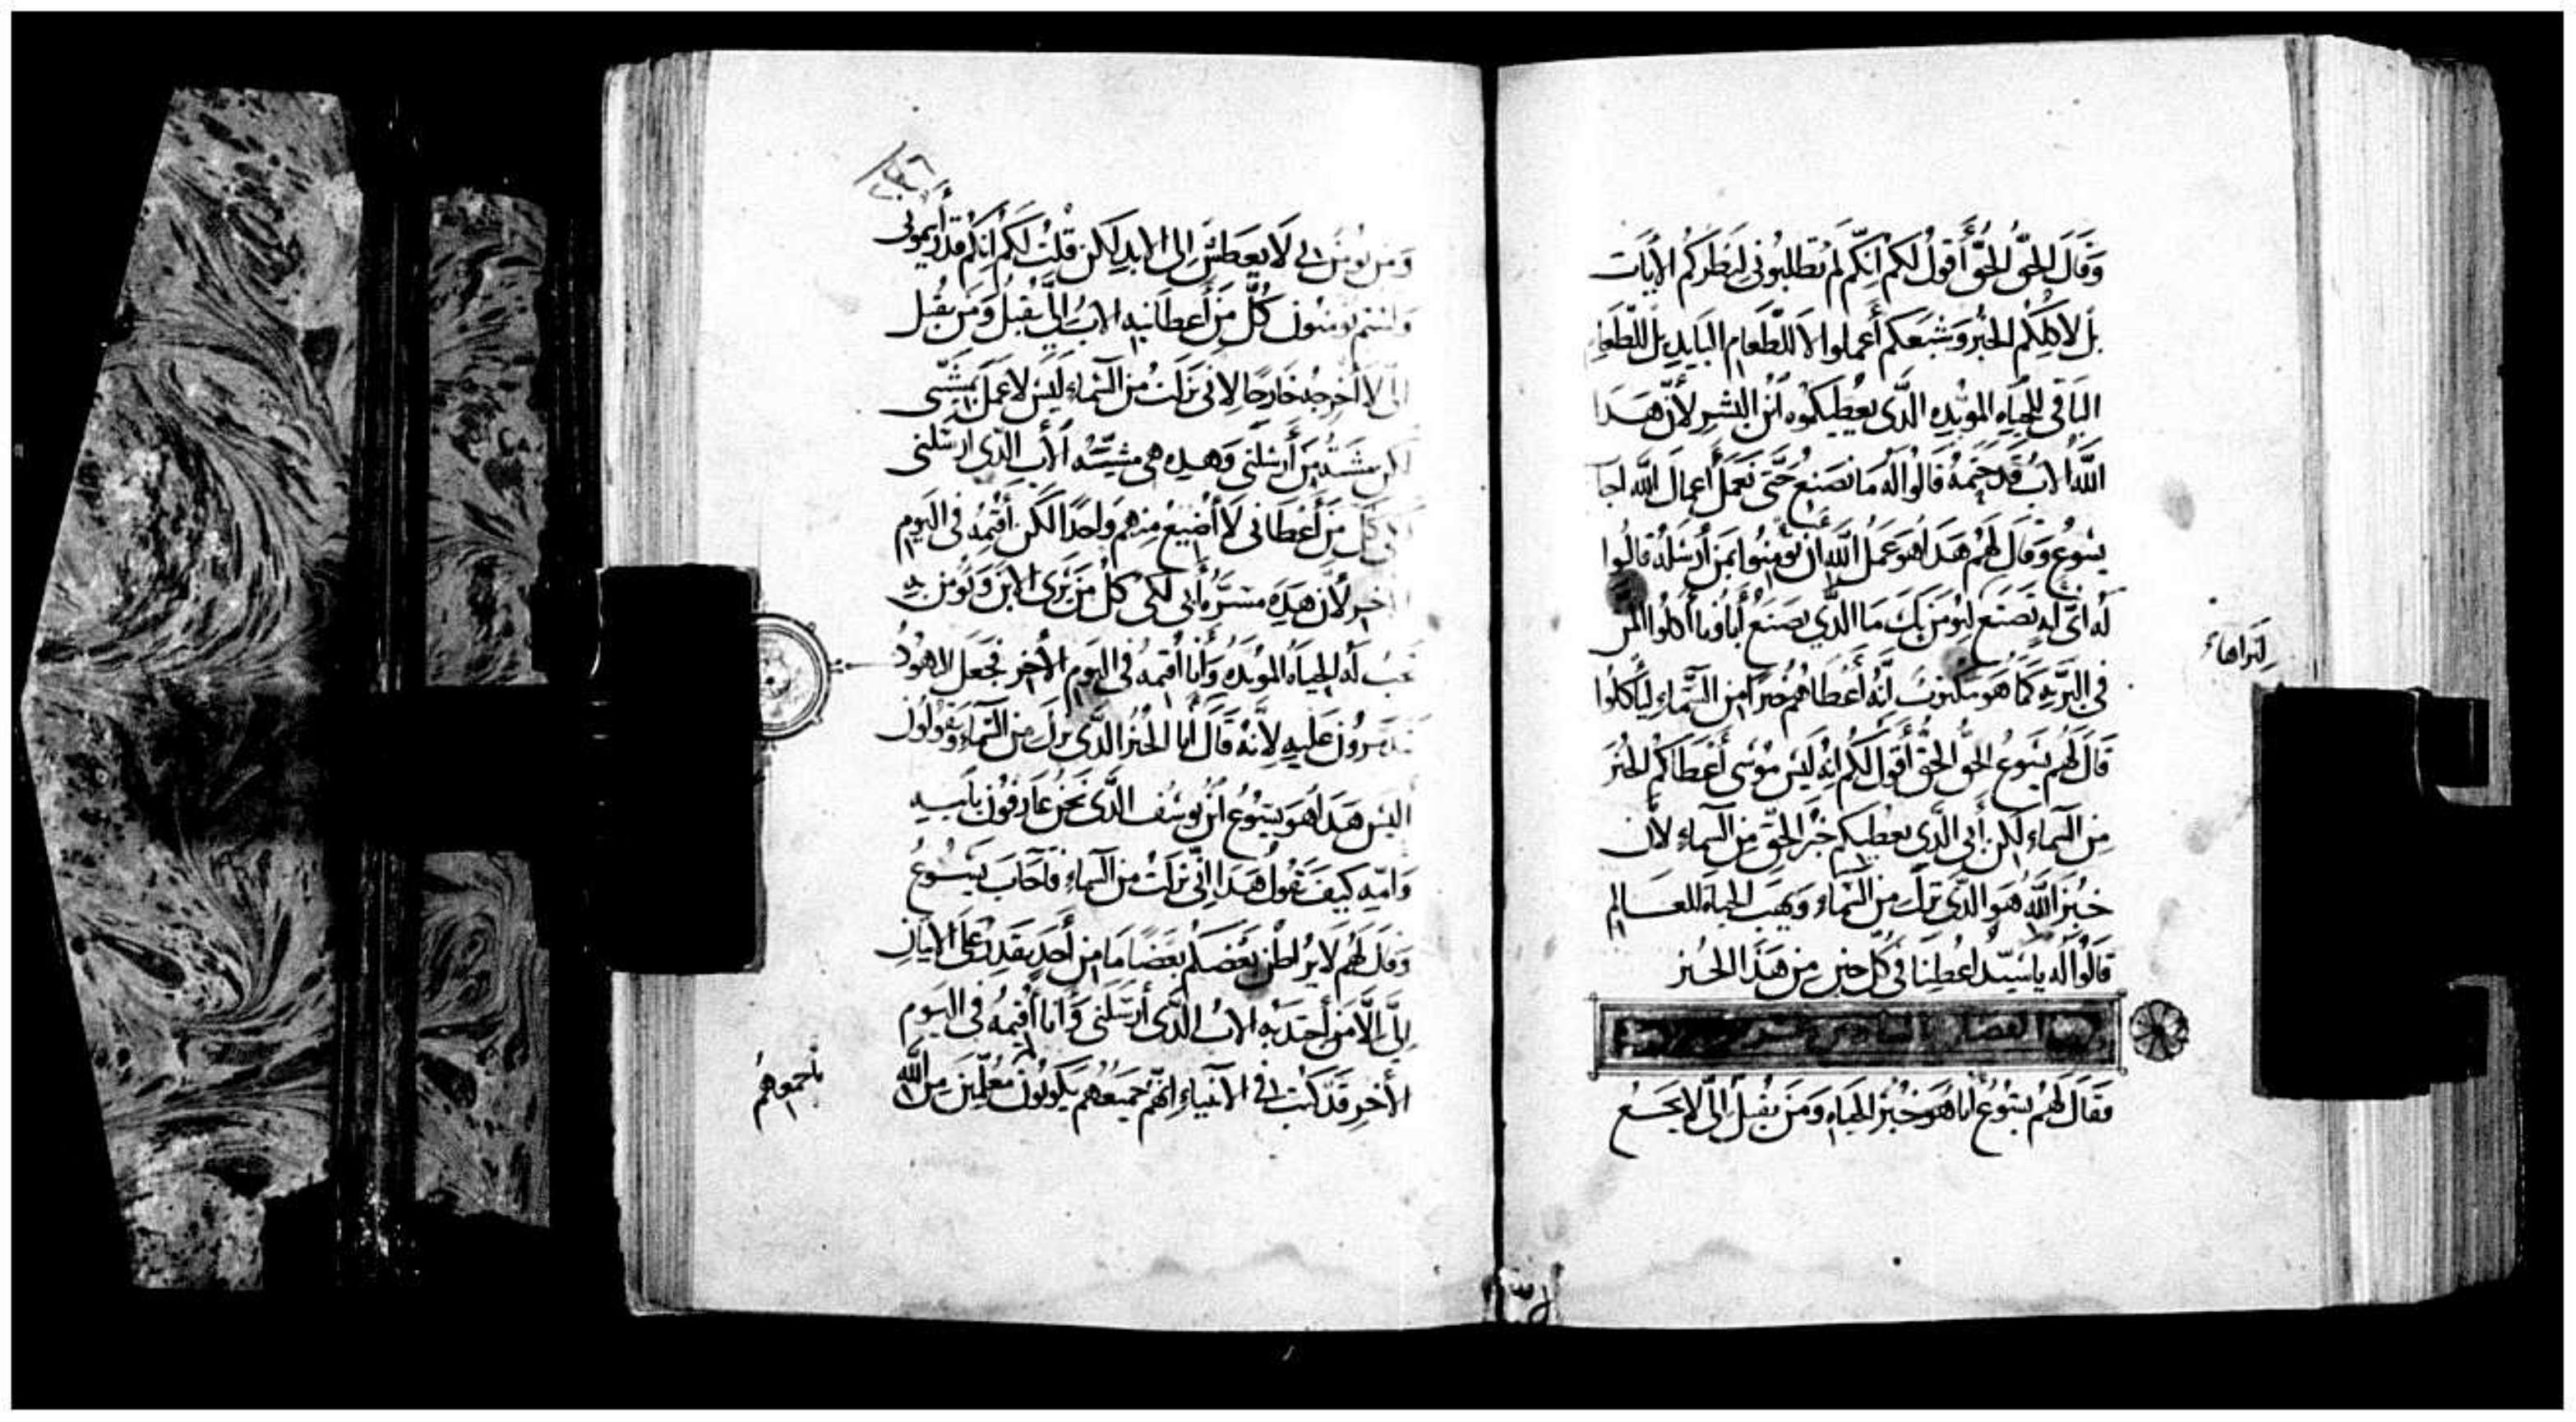 وَقَالَ الحَقَّ الحَقَّ أَقُولُ لَكُم اِنَّكُم لَم تَطلبُونِي لِنَظَرِكُم الآيَات
بَل لاكلِكُم الخبز وَشبَعَكم أَعملوا لا للطعَام البَايِدِ بل للطعَام
البَاقِي للحيَاه الموَبَّدِه الَّذي يُعطيكموه اَبْنُ البَشَرِ لأَن هَدَا
اللَّه الابُ قَد خَتمَهُ قَالُوا لَهُ مَا نَصنَع حَتَّى نَعمَل أَعمَالَ اللَّه اجَاب
يسُوعُ وَقَالَ لَهُم هَدَا هُوَ عَمَلُ اللَّهِ أَن تُومِنُوا بمَن أَرسَلَهُ قَالُوا
لَهُ أَىّ ايه تَصنَع لِنُومِنَ بِكَ مَا الَّذِي تصنَعُ أَبَاونَا أَكلُوا المن
لنَراهَا
فِي البَرّيَه كَمَا هُوَ مَكتوبٌ انَّهُ أَعطَاهُم خبزًا مِنَ السَّمَاءِ ليَأكلُوا
قَالَ لَهُم يَسُوع الحَقَّ الحَقَّ أَقُول لَكُم اِنَّهُ لَيسَ مُوسَى أَعطَاكُم الخُبزَ
مِنَ السَمَاءِ لَكِن أَبِي الَّذِي يعطيكم خُبزَ الحَقِّ مِنَ السمَاءِ لأَن
خُبزَ اللَّهِ هُوَ الَّذِي نزَل مِنَ السَّمَاءِ وَيَهَب الحيَاة للعَالمِ
قَالُوا لَه يَا سَيّد اعطِنَا فِي كُلّ حين مِن هَذَا الخُبز
الفصل السادس عشر
فقَالَ لَهُم يَسُوعُ أَنَا هُوَ خُبزُ الحيَاهِ وَمَن يُقبِل إلَيَّ لا يَجُوع
وَمَن يُومِن بِي لَا يَعطَش إِلَى الابد لَكِن قُلتُ لَكُم اِنَّكُم قَد رَأَيتمونِي
وَلستم تومنُون كُلُّ مَن أَعطَانِيهِ الابُ إِلَيَّ يُقبلُ وَمَن يُقبل
الَيَّ لا أخرجهُ خَارجًا لانِّي نزَلتُ مِنَ السَّمَاءِ لَيسَ لاعمَلَ بمَشيَّتي
لكن مشيَّه مَن أَرسَلنِي وَهَدِه هِيَ مشيَّه الأَب الَّذِي ارسَلنِي
كُلّ مَن أَعطَانِي لَا أُضِيعُ مِنهم وَاحدًا لَكن أُقيمُهُ فِي اليَومِ
الاخِر لأَن هَدِهِ مسَرَّه أَبِي لكَي كلّ مَن يَرَى الابنَ وَيُومن بِهِ
تجبُ لَه الحيَاه الموَبَّدَه وَأَنَا أُقيمُه فِي اليَوم الأَخِر فجَعَل اليَهُودُ
يَتَدَمَّرُونَ عَلَيهِ لأنَّهُ قَالَ أَنَا الخُبزُ الَّذِي نَزَلَ مِنَ السَّمَاءِ وَيَقُولُونَ
أَليسَ هَدَا هُوَ يَسُوعُ ابنُ يُوسُف الَّذِي نَحنُ عَارفُون بأَبيهِ
وَامّهِ كَيفَ يَقُول هَدَا اِنِّي نَزلتُ مِنَ السمَاءِ فَاجَابَ يَسُوعُ
وَقَال لَهُم لا يُرَاطن بَعضكُم بعضًا مَا مِن أَحَدٍ يَقدرُ عَلَى الاتيَانِ
إِلَيَّ إِلَّا مَن أَجتَدَبَه الابُ الَّذِي أَرسَلنِي وَأَنَا أُقيمُه فِي اليَومِ
الأَخِر قَد كُتبَ فِي الانبيَاءِ إِنَّهُم جَميعُهُم يَكونُونَ مُعَلَّمِينَ مِنَ اللَّه
بأجمعِهِم